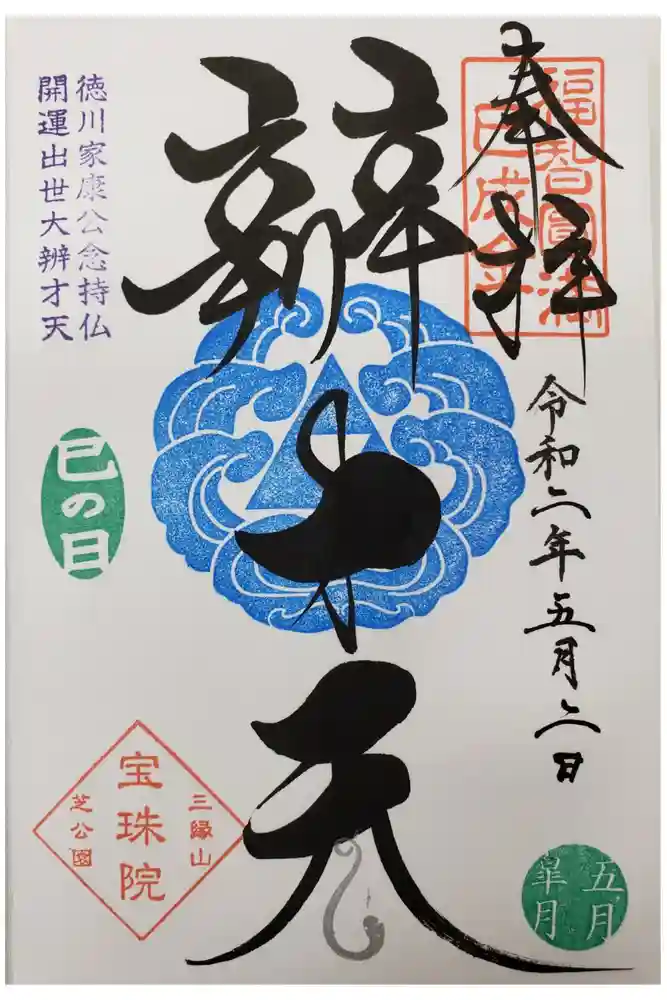 奉拝
福智圓満
巳成金
令和二年五月二日
五月
皐月
辨才天
徳川家康公念持仏
開運出世大辨才天
巳の日
三縁山
宝珠院
芝公園